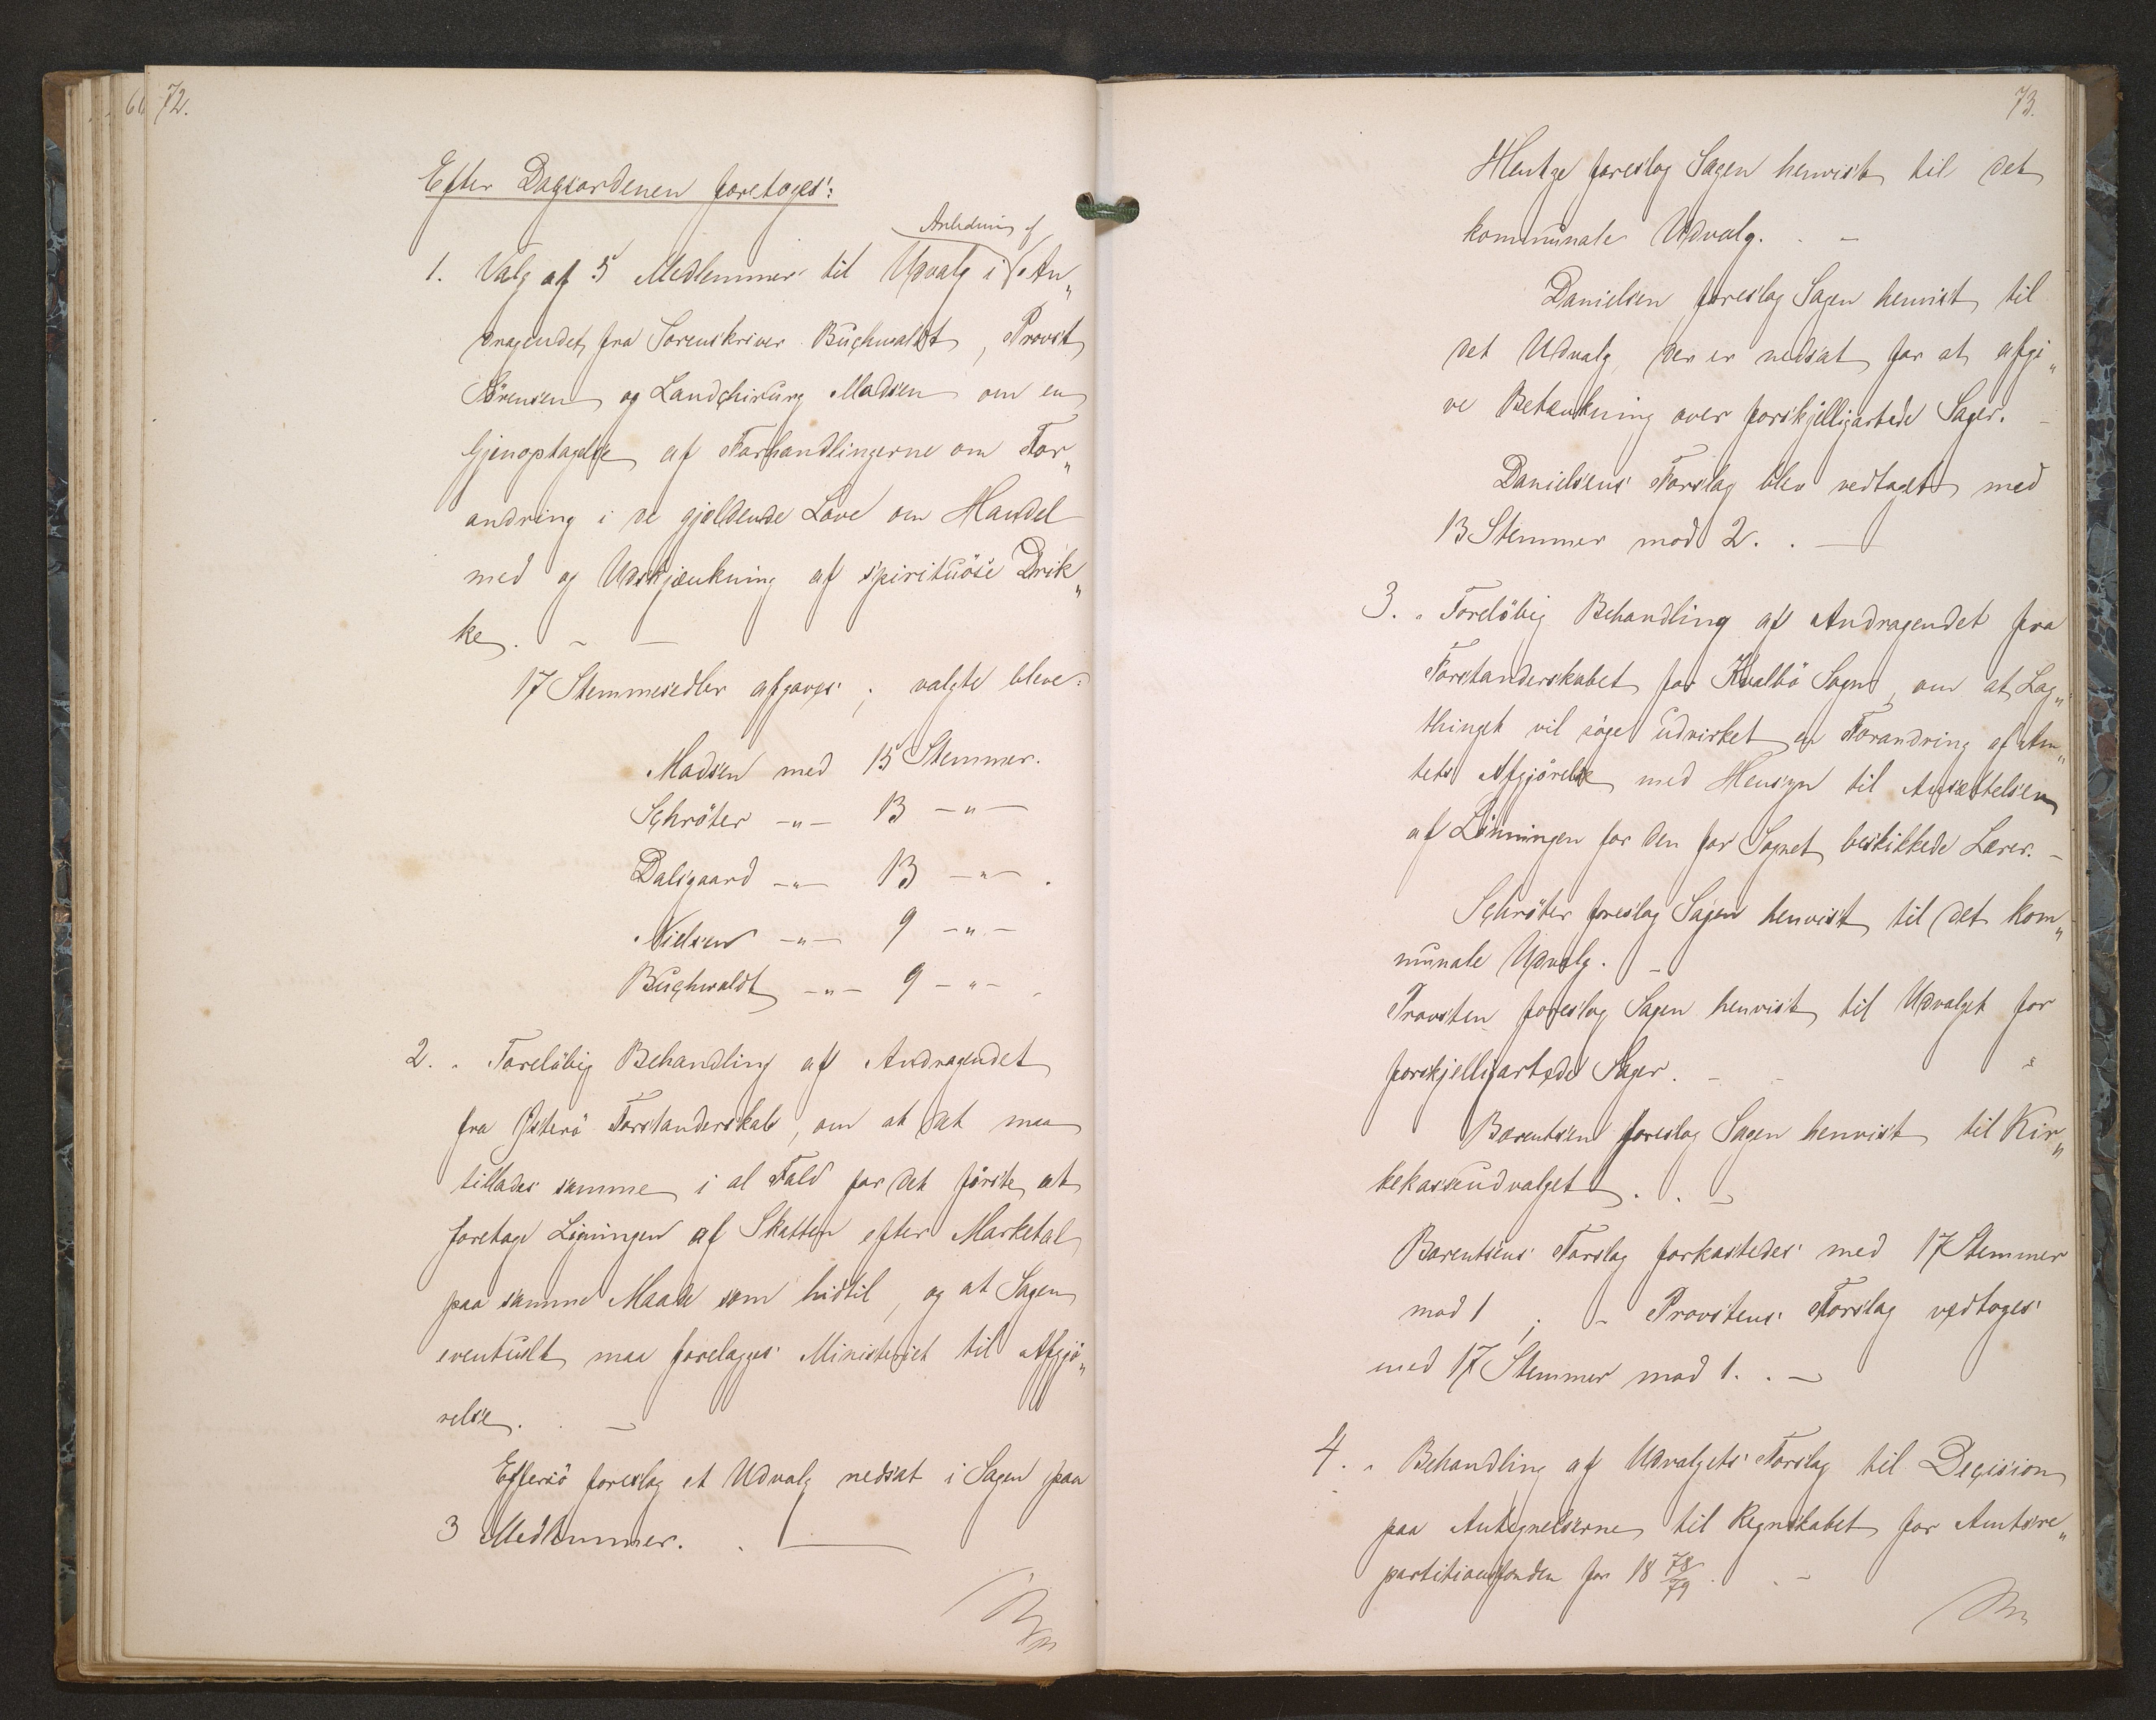 66 72.
Efter Dagsordenen foretoges:
Anledning af
1. Valg af 5 Medlemmer til Udvalg i An„
dragendet fra Sorenskriver Buchwaldt, Provst
Sörensen og Landchirurg Madsen om en
Gjenoptagelse af Forhandlingerne om For„
andring i de gjældende Love om Handel
med og Udskjænkning af spirituöse Drik„
ke. - -
17 Stemmesedler afgaves; valgte bleve:
Madsen med 15 Stemmer.
Schröter -„- 13 -„-
Dalsgaard -„- 13 -„- .
Nielsen -„- 9 -„-
Buchwaldt -„- 9 -„- .
2. . Foreløbig Behandling af Andragendet
fra Österö Forstanderskab, om at det maa
tillades samme i al Fald for det förste at
foretage Ligningen af Skatten efter Marketal
paa samme Maade som hidtil, og at Sagen
eventuelt maa forelægges Ministeriet til Afgjö„
relse. . -
Effersö foreslog et Udvalg nedsat i Sagen paa
3 Medlemmer. . -
73.
Hentze foreslog Sagen henvist til det
kommunale Udvalg. . -
Danielsen foreslog Sagen henvist til
det Udvalg, der er nedsat for at afgi„
ve Betænkning over forskjelligartede Sager. -
Danielsens Forslag blev vedtaget med
13 Stemmer mod 2. . -
3. . Forelöbig Behandling af Andragendet fra
Forstanderskabet for Kvalbö Sogn, om at Lag„
thinget vil söge udvirket en Forandring af Am„
tets Afgjörelse med Hensyn til Ansættelsen
af Lönningen for den for Sognet beskikkede Lærer. -
Schröter foreslog Sagen henvist til det kom„
munale Udvalg. -
Provsten foreslog Sagen henvist til Udvalget for
forskjelligartede Sager. - -
Barentsen foreslog Sagen henvist til Kir„
kekasseudvalget. . -
Barentsens Forslag forkastedes med 17 Stemmer
mod 1 ; - Provstens Forslag vedtoges
med 17 Stemmer mod 1. . -
4. . Behandling af Udvalgets Forslag til Decision
paa Antegnelserne til Regnskabet for Amtsre„
partitionsfonden for 18 78/79. . -